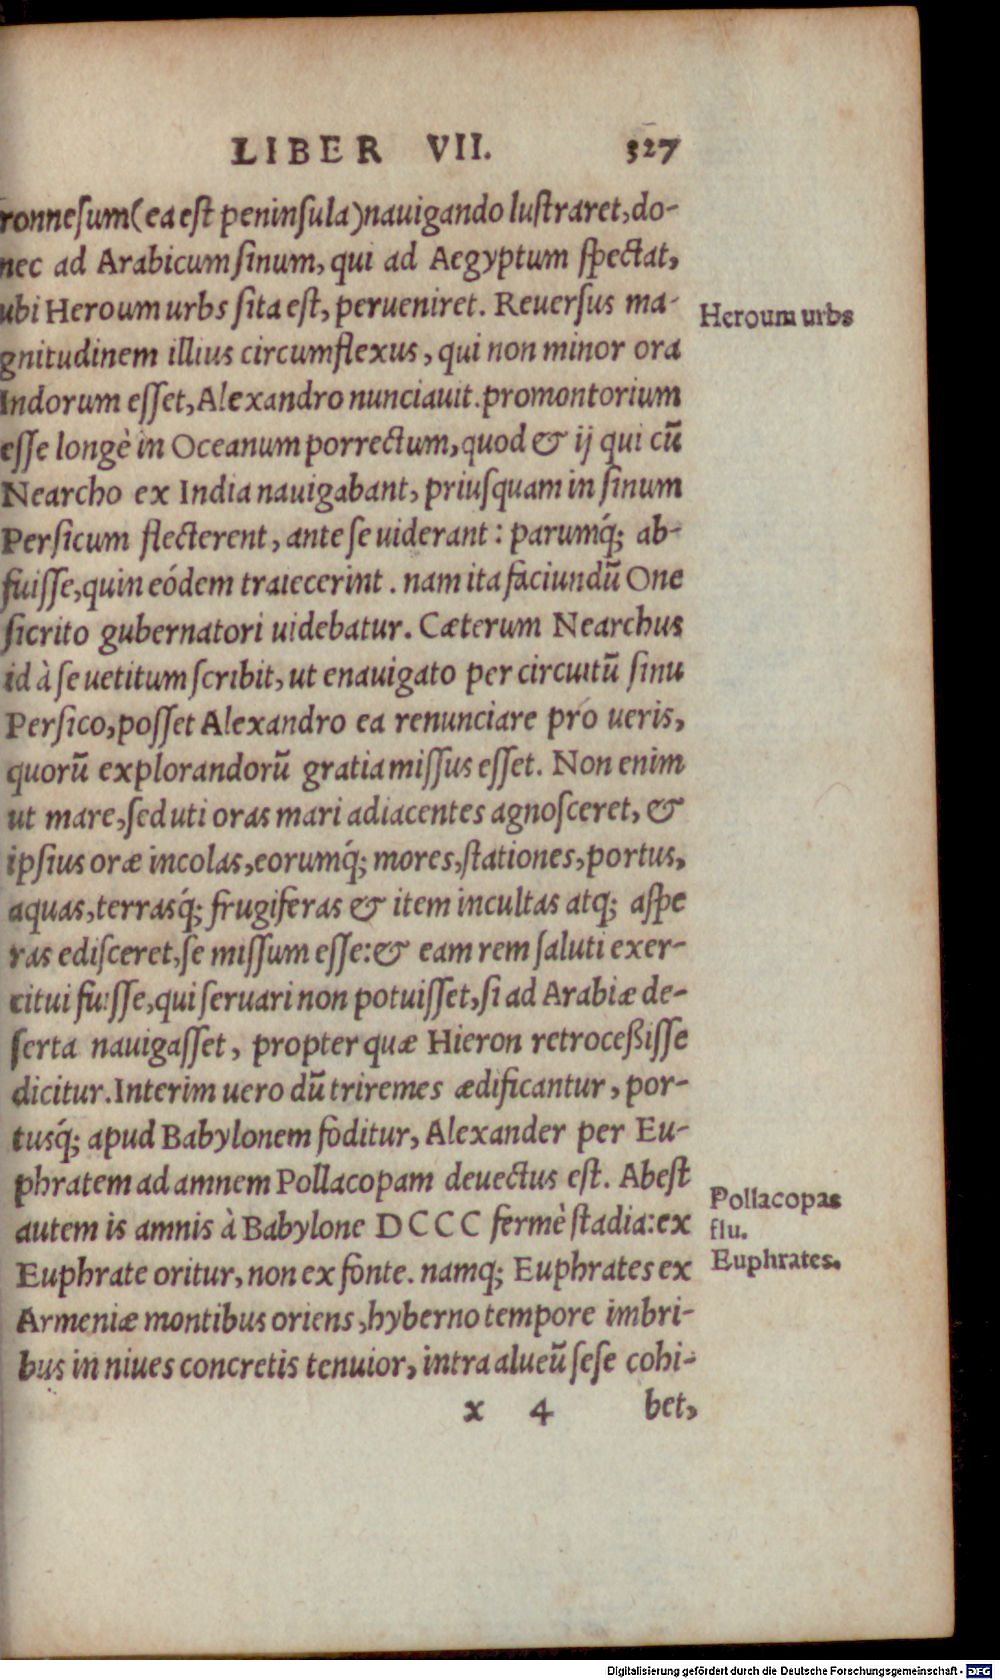 LIBER VII. 327
ronnesum (ea est peninsula) nauigando lustraret, do-
nec ad Arabicum sinum, qui ad Aegyptum spectat,
ubi Heroum urbs sita est, perueniret. Reuersus ma-
Heroum urbs
gnitudinem illius circumflexus, qui non minor ora
Indorum esset, Alexandro nunciauit. promontorium
esse longè in Oceanum porrectum, quod & ij qui cū
Nearcho ex India nauigabant, priusquam in sinum
Persicum flecterent, ante se uiderant: parumq́; ab-
fuisse, quin eódem traiecerint. nam ita faciundū One
sicrito gubernatori uidebatur. Cæterum Nearchus
id à se uetitum scribit, ut enauigato per circuitū sinu
Persico, posset Alexandro ea renunciare pro ueris,
quorū explorandorū gratia missus esset. Non enim
ut mare, sed uti oras mari adiacentes agnosceret, &
ipsius oræ incolas, eorumq́; mores, stationes, portus,
aquas, terrasq́; frugiferas & item incultas atq; aspe
ras edisceret, se missum esse: & eam rem saluti exer-
citui fuisse, qui seruari non potuisset, si ad Arabiæ de-
serta nauigasset, propter quæ Hieron retroceßisse
dicitur. Interim uero dū triremes ædificantur, por-
tusq́; apud Babylonem foditur, Alexander per Eu-
phratem ad amnem Pollacopam deuectus est. Abest
Pollacopas
autem is amnis à Babylone DCCC fermè stadia: ex
flu.
Euphrate oritur, non ex fonte. namq; Euphrates ex
Euphrates.
Armeniæ montibus oriens, hyberno tempore imbri-
bus in niues concretis tenuior, intra alueū sese cohi-
x 4 bet,
Digitalisierung gefördert durch die Deutsche Forschungsgemeinschaft - DFG